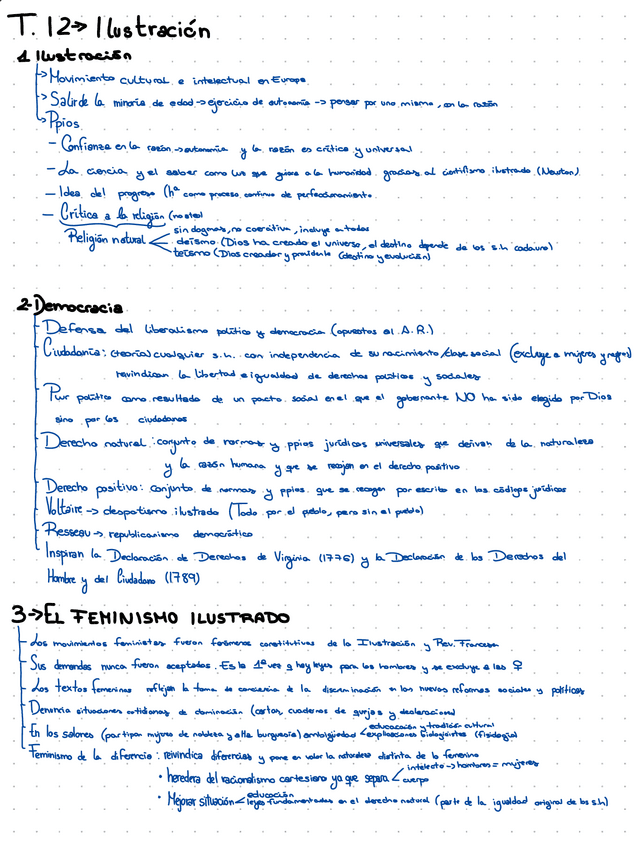 T. 12→ Ilustración
1 Ilustración
→ Movimiento cultural e intelectual en Europa
→ Salir de la minoría de edad → ejercicio de autonomía → pensar por uno mismo, con la razón
→ Ppios
- Confianza en la razón → autonomía y la razón es crítica y universal
- La ciencia y el saber como luz que guía a la humanidad gracias al cientifismo ilustrado (Newton)
- Idea del progreso (hª como proceso continuo de perfeccionamiento
- Crítica a la religión (no ateo)
Religión natural
sin dogmas, no coercitiva, incluye a todos
deísmo (Dios ha creado el universo, el destino depende de los s.h cada uno)
teísmo (Dios creador y providente (destino y evolución)
2-Democracia
Defensa del liberalismo político y democracia (opuestos al A.R.)
Ciudadanía: (teoría) cualquier s.h. con independencia de su nacimiento/clase social (excluye a mujeres y negros)
reivindican la libertad e igualdad de derechos políticos y sociales
político como resultado de un pacto social en el que el gobernante NO ha sido elegido por Dios
sino por los ciudadanos
Derecho natural: conjunto de normas y ppios jurídicos universales que derivan de la naturaleza
y la razón humana y que se recojan en el derecho positivo
Derecho positivo: conjunto de normas y ppios que se recogen por escrito en los códigos jurídicos
Voltaire → despotismo ilustrado (Todo por el pueblo, pero sin el pueblo)
→ republicanismo democrático
Inspiran la Declaración de Derechos de Virginia (1776) y la Declaración de los Derechos del
Hombre y del Ciudadano (1789)
3→EL FEMINISMO ILUSTRADO
Los movimientos feministas fueron fenómenos constitutivos de la Ilustración y Rev. Francesa
Sus demandas nunca fueron aceptadas. Es la 1ª vez q hay leyes para los hombres y se excluye a las ♀
Los textos femeninos reflejan la toma de conciencia de la discriminación en las nuevas reformas sociales y políticas
Denuncia situaciones cotidianas de dominación (cartas, cuadernos de quejas y declaraciones)
En los salones (participan mujeres de nobleza y alta burguesía) ambigüedad
educación y tradición cultural
explicaciones biologicistas (fisiología)
Feminismo de la diferencia: reivindica diferencias y pone en valor la naturaleza distinta de lo femenino
• heredera del racionalismo cartesiano ya que separa
intelecto → hombres = mujeres
cuerpo
• Mejorar situación
educación
leyes fundamentadas en el derecho natural (parte de la igualdad original de los s.h)